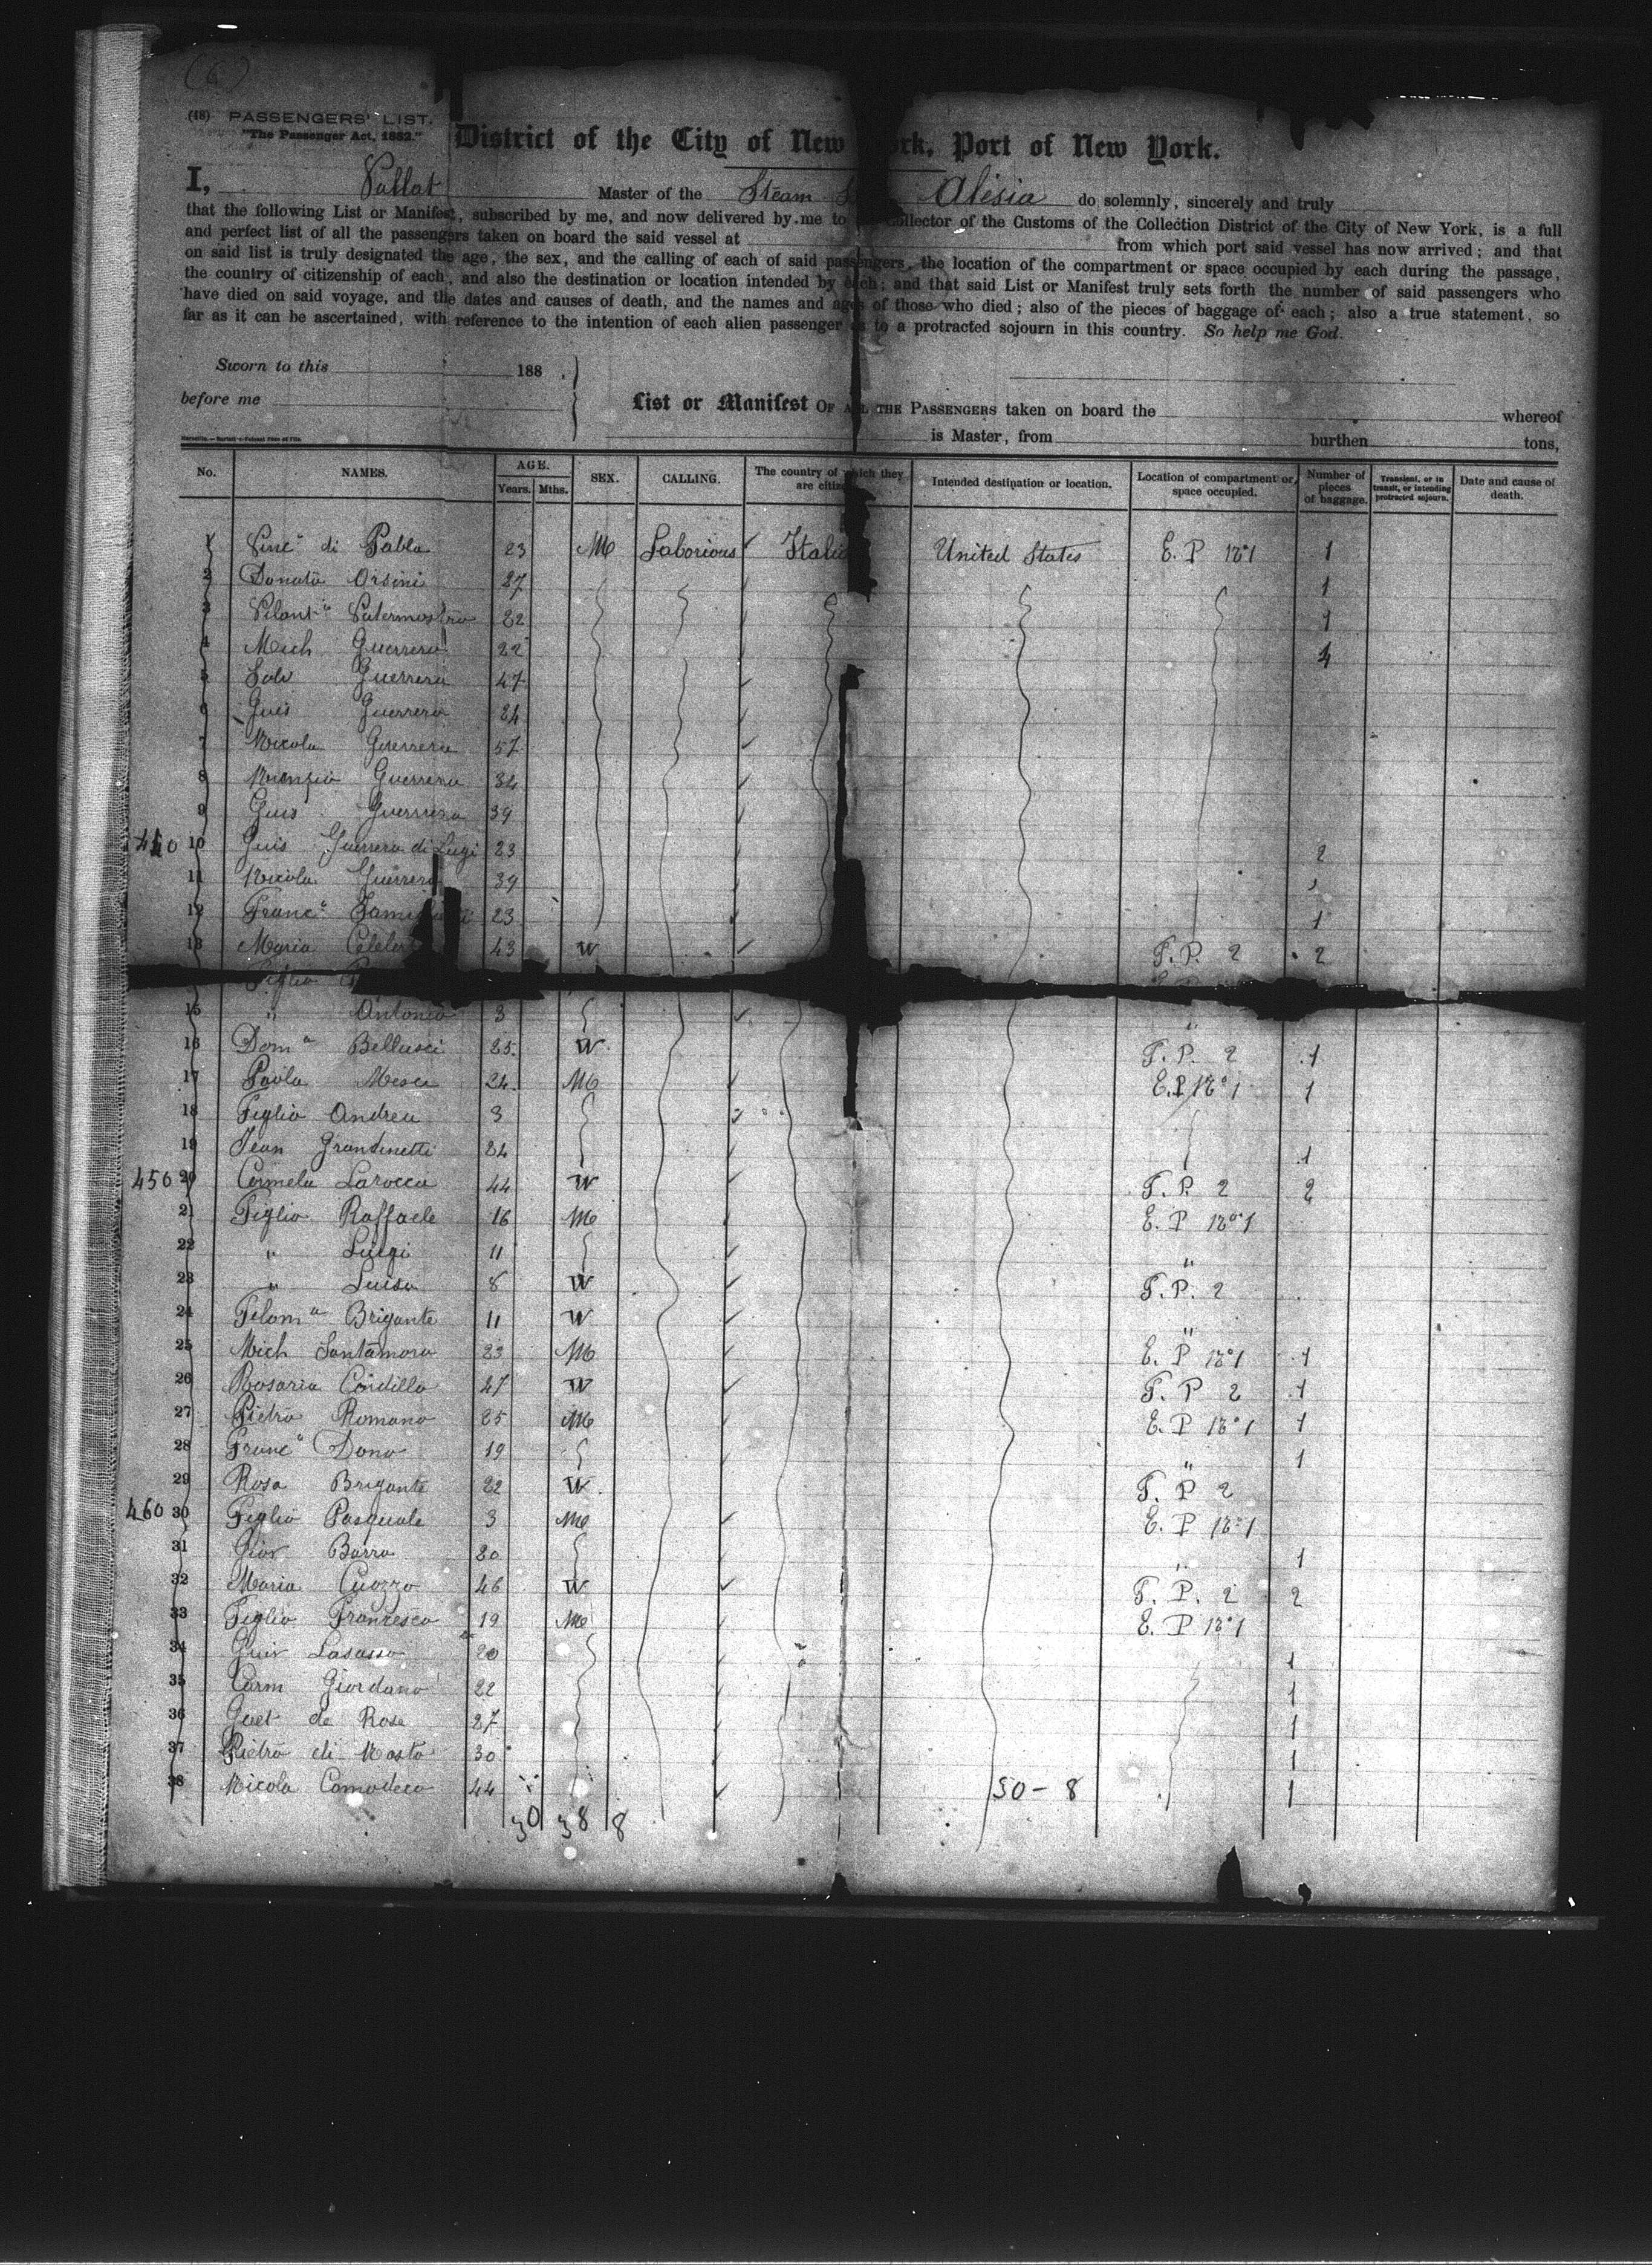 (6)
(18) PASSENGERS' LIST.
"The Passenger Act, 1882."
District of the City of New ork, Port of New York.
I, Vallat Master of the Steam Alésia do solemnly, sincerely and truly
that the following List or Manifest, subscribed by me, and now delivered by me to Collector of the Customs of the Collection District of the City of New York, is a full
and perfect list of all the passengers taken on board the said vessel at from which port said vessel has now arrived; and that
on said list is truly designated the age, the sex, and the calling of each of said passengers, the location of the compartment or space occupied by each during the passage,
the country of citizenship of each, and also the destination or location intended by each; and that said List or Manifest truly sets forth the number of said passengers who
have died on said voyage, and the dates and causes of death, and the names and ages of those who died; also of the pieces of baggage of each; also a true statement, so
far as it can be ascertained, with reference to the intention of each alien passenger as to a protracted sojourn in this country. So help me God.
Sworn to this 188 .
before me
List or Manifest OF ALL THE PASSENGERS taken on board the whereof
is Master, from burthen tons,
No. NAMES. AGE. Years. Mths. SEX. CALLING. The country of which they are citiz Intended destination or location. Location of compartment or space occupied. Number of pieces of baggage. Transient, or in transit, or intending protracted sojourn. Date and cause of death.
1 Vinc° di Pabla 23 M Laborious Italia United States E. P N°1 1
2 Donato Orsini 27 1
3 Patermostro 22 1
4 Mich Guerrera 22 1
5 Salv Guerrera 47
6 Guis Guerrera 24
7 Nicola Guerrera 57
8 Nunzio Guerrera 34
9 Guis Guerrera 39
440 10 Guis Guerrera di Luigi 23 2
11 Nicola Guerrera 39
12 Franc° 23 1
13 Maria 43 W F. P. 2 2
Figlio
15 " Antonio 3 "
16 Dom a Bellusci 25 W F. P. 2 1
17 Paola Mesci 24 M E. P N°1 1
18 Figlio Andrea 3
19 Jean Grandinetti 24 1
450 20 Carmela Larocca 44 W F. P. 2 2
21 Figlio Raffaele 16 M E. P N°1
22 " Luigi 11 "
23 " Luisa 8 W F. P. 2
24 Filom a Brigante 11 W "
25 Mich Santamora 23 M E. P N°1 1
26 Rosaria Cordillo 27 W F. P 2 1
27 Pietro Romano 25 M E. P N°1 1
28 Franc° Dono 19 " 1
29 Rosa Brigante 22 W F. P 2
460 30 Figlio Pasquale 3 M E. P N°1
31 Giov Barra 20 " 1
32 Maria Cuozzo 46 W F. P. 2 2
33 Figlio Francesco 19 M E. P N°1
34 Lasasso 20 1
35 Carm Giordano 22 1
36 Gaet de Rosa 27 1
37 Pietro di Nosto 30 1
38 Nicola Camodeca 44 50 - 8 1
30 38 8